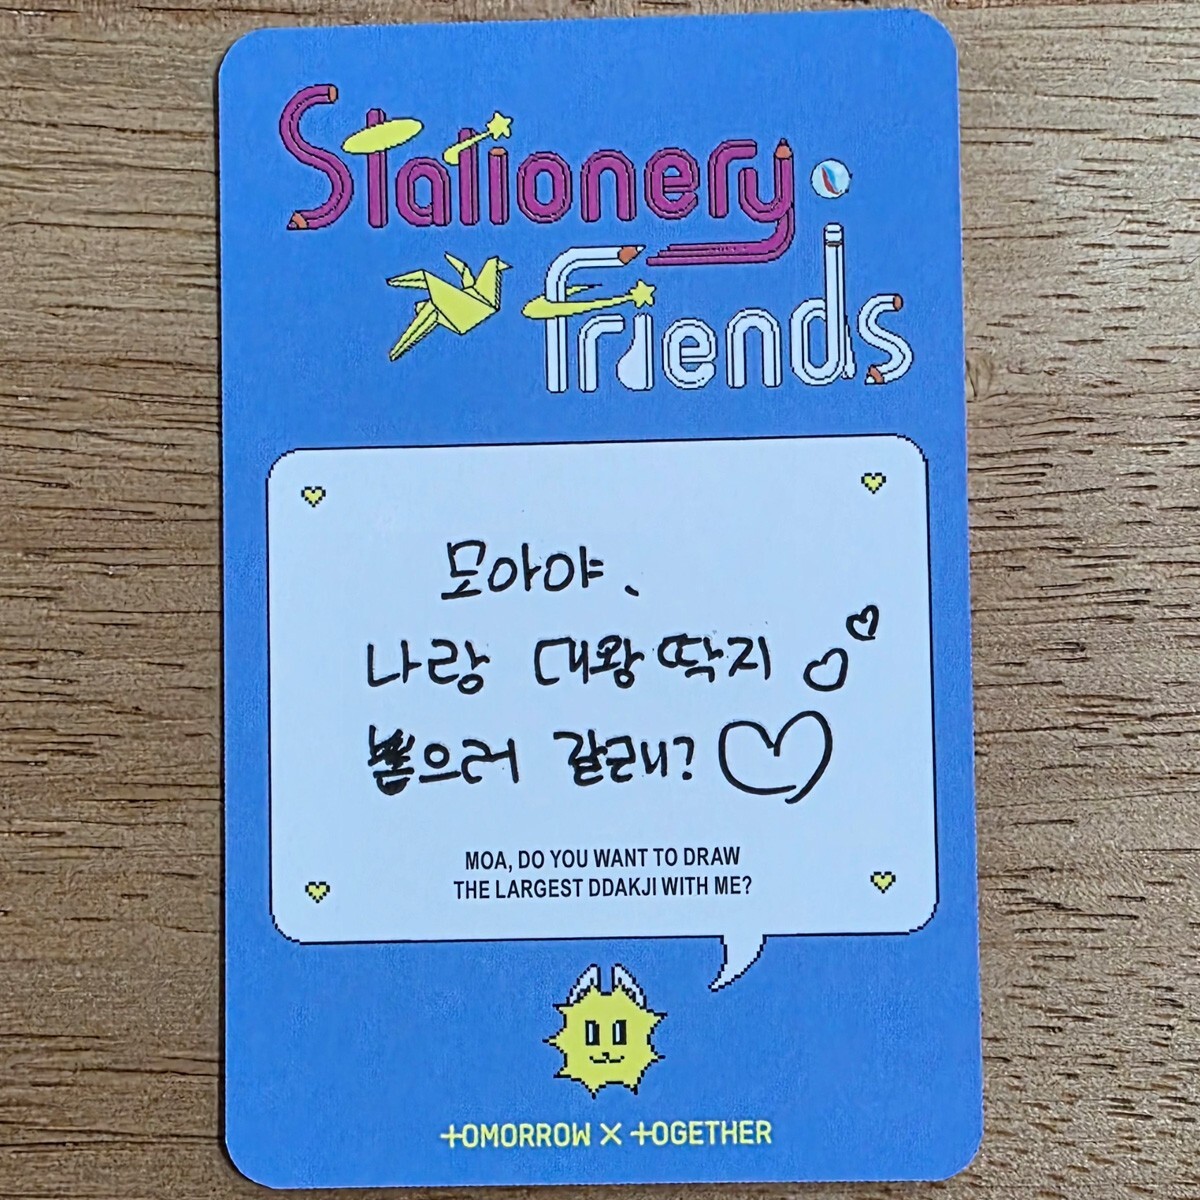 Stationery
Friends
모아야,
나랑 대왕딱지
뽑으러 갈래?
MOA, DO YOU WANT TO DRAW
THE LARGEST DDAKJI WITH ME?
TOMORROW X TOGETHER